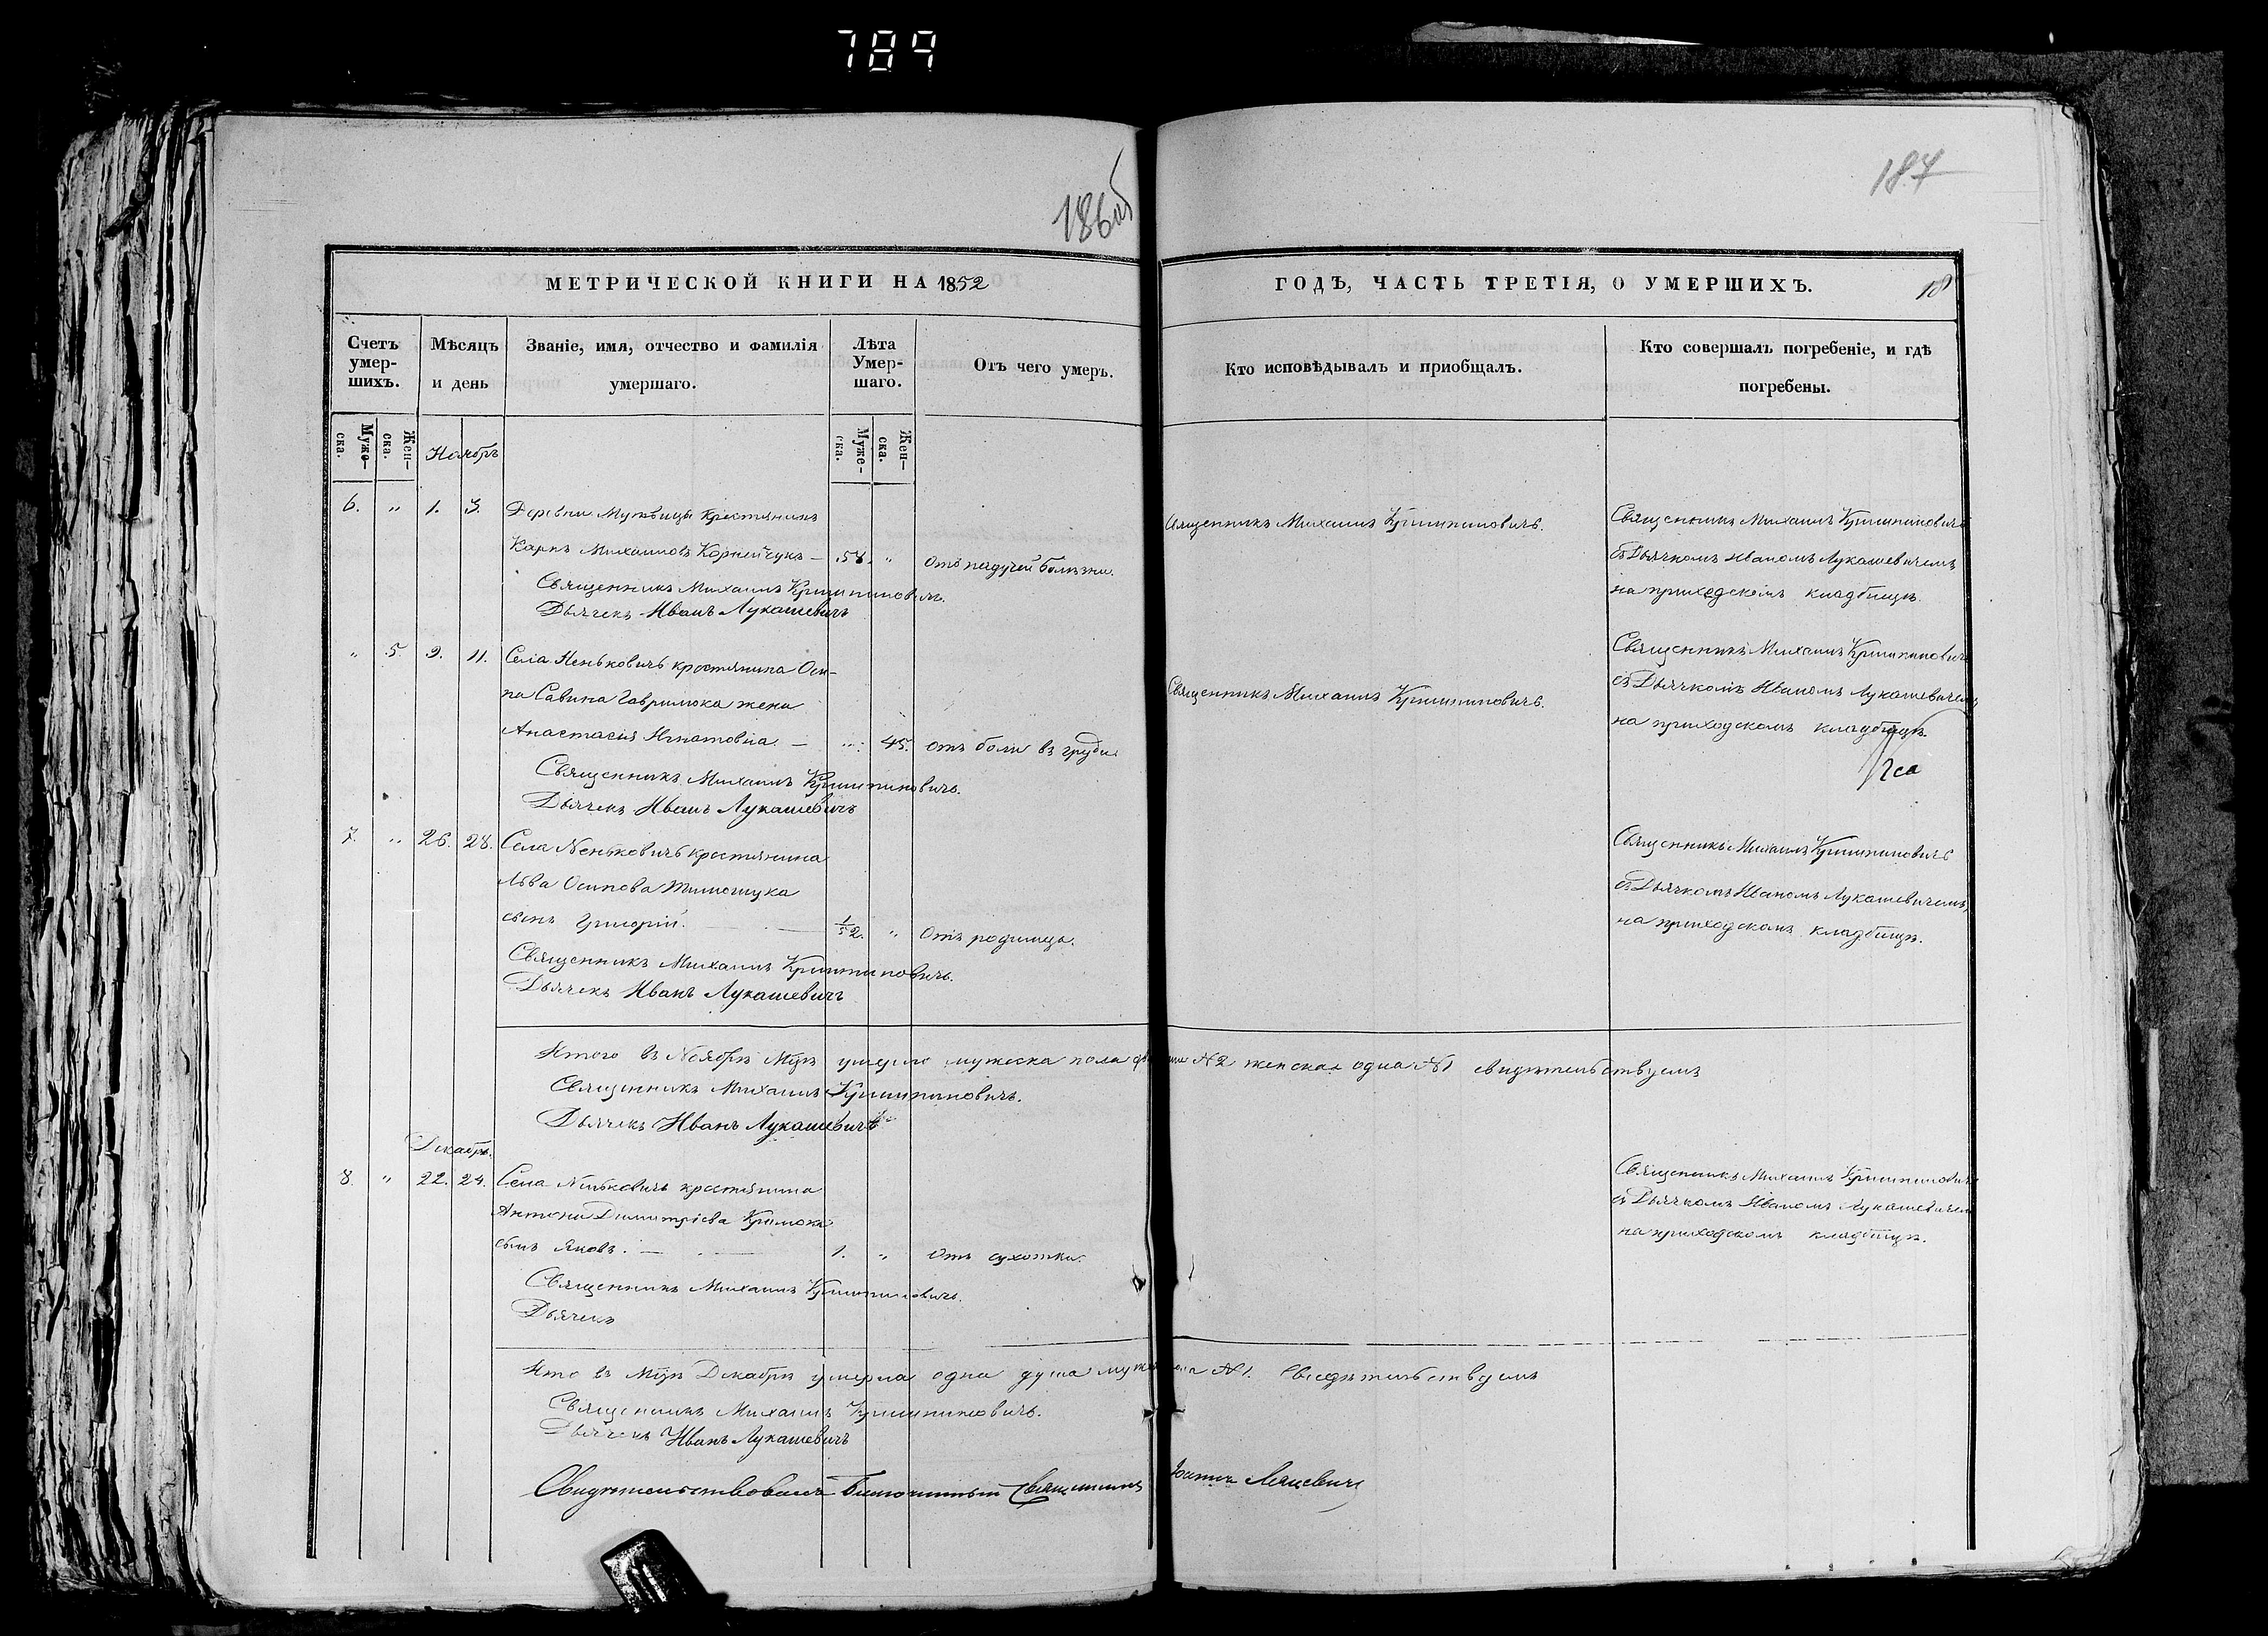 789
186 об
187
МЕТРИЧЕСКОЙ КНИГИ НА 1852
ГОДЪ, ЧАСТЬ ТРЕТІЯ, О УМЕРШИХЪ.
18
Счетъ умер-шихъ.
Мѣсяцъ и день
Званіе, имя, отчество и фамилія умершаго.
Лѣта Умер-шаго.
Отъ чего умеръ.
Кто исповѣдывалъ и приобщалъ.
Кто совершалъ погребеніе, и гдѣ погребены.
Муже-ска.
Жен-ска.
Муже-ска.
Жен-ска.
Ноябрь
6. " 1. 3. Деревни крестьянинъ
Карпъ Михаиловъ Корнейчукъ — 58. " Отъ падучей болѣзни.
Священникъ Михаилъ Криштиновичъ.
Дьячекъ Иванъ Лукашевичъ
Священникъ Михаилъ Криштиновичъ.
Священникъ Михаилъ Криштиновичъ
съ Дьячкомъ Иваномъ Лукашевичемъ
на приходскомъ кладбищѣ.
" 5. 9. 11. Села Неньковичъ крестьянина Оси-
па Савина Гаврилюка жена
Анастасія Игнатовна. — " 45. отъ боли въ груди
Священникъ Михаилъ Криштиновичъ.
Дьячекъ Иванъ Лукашевичъ
Священникъ Михаилъ Криштиновичъ.
Священникъ Михаилъ Криштиновичъ
съ Дьячкомъ Иваномъ Лукашевичемъ
на приходскомъ кладбищѣ.
7. " 26. 28. Села Неньковичъ крестьянина
Льва Осипова Тимошука
сынъ Григорій. — 1/52. " Отъ родимца.
Священникъ Михаилъ Криштиновичъ.
Дьячекъ Иванъ Лукашевичъ
Священникъ Михаилъ Криштиновичъ
съ Дьячкомъ Иваномъ Лукашевичемъ,
на приходскомъ кладбищѣ.
Итого въ Ноябрѣ Мцѣ умерло мужеска пола №2 женска одна №1 свидѣтельствуемъ
Священникъ Михаилъ Криштиновичъ.
Дьячекъ Иванъ Лукашевичъ
Декабрь.
8. " 22. 24. Села Неньковичъ крестьянина
Антона Димитріева
сынъ Яковъ. — 1. " Отъ сухотки.
Священникъ Михаилъ Криштиновичъ.
Дьячекъ
Священникъ Михаилъ Криштиновичъ
съ Дьячкомъ Иваномъ Лукашевичемъ
на приходскомъ кладбищѣ.
Ито въ Мцѣ Декабрѣ умерла одна душа №1. Свидѣтельствуемъ
Священникъ Михаилъ Криштиновичъ.
Дьячекъ Иванъ Лукашевичъ
Свидѣтельствовалъ Благочинный Священникъ